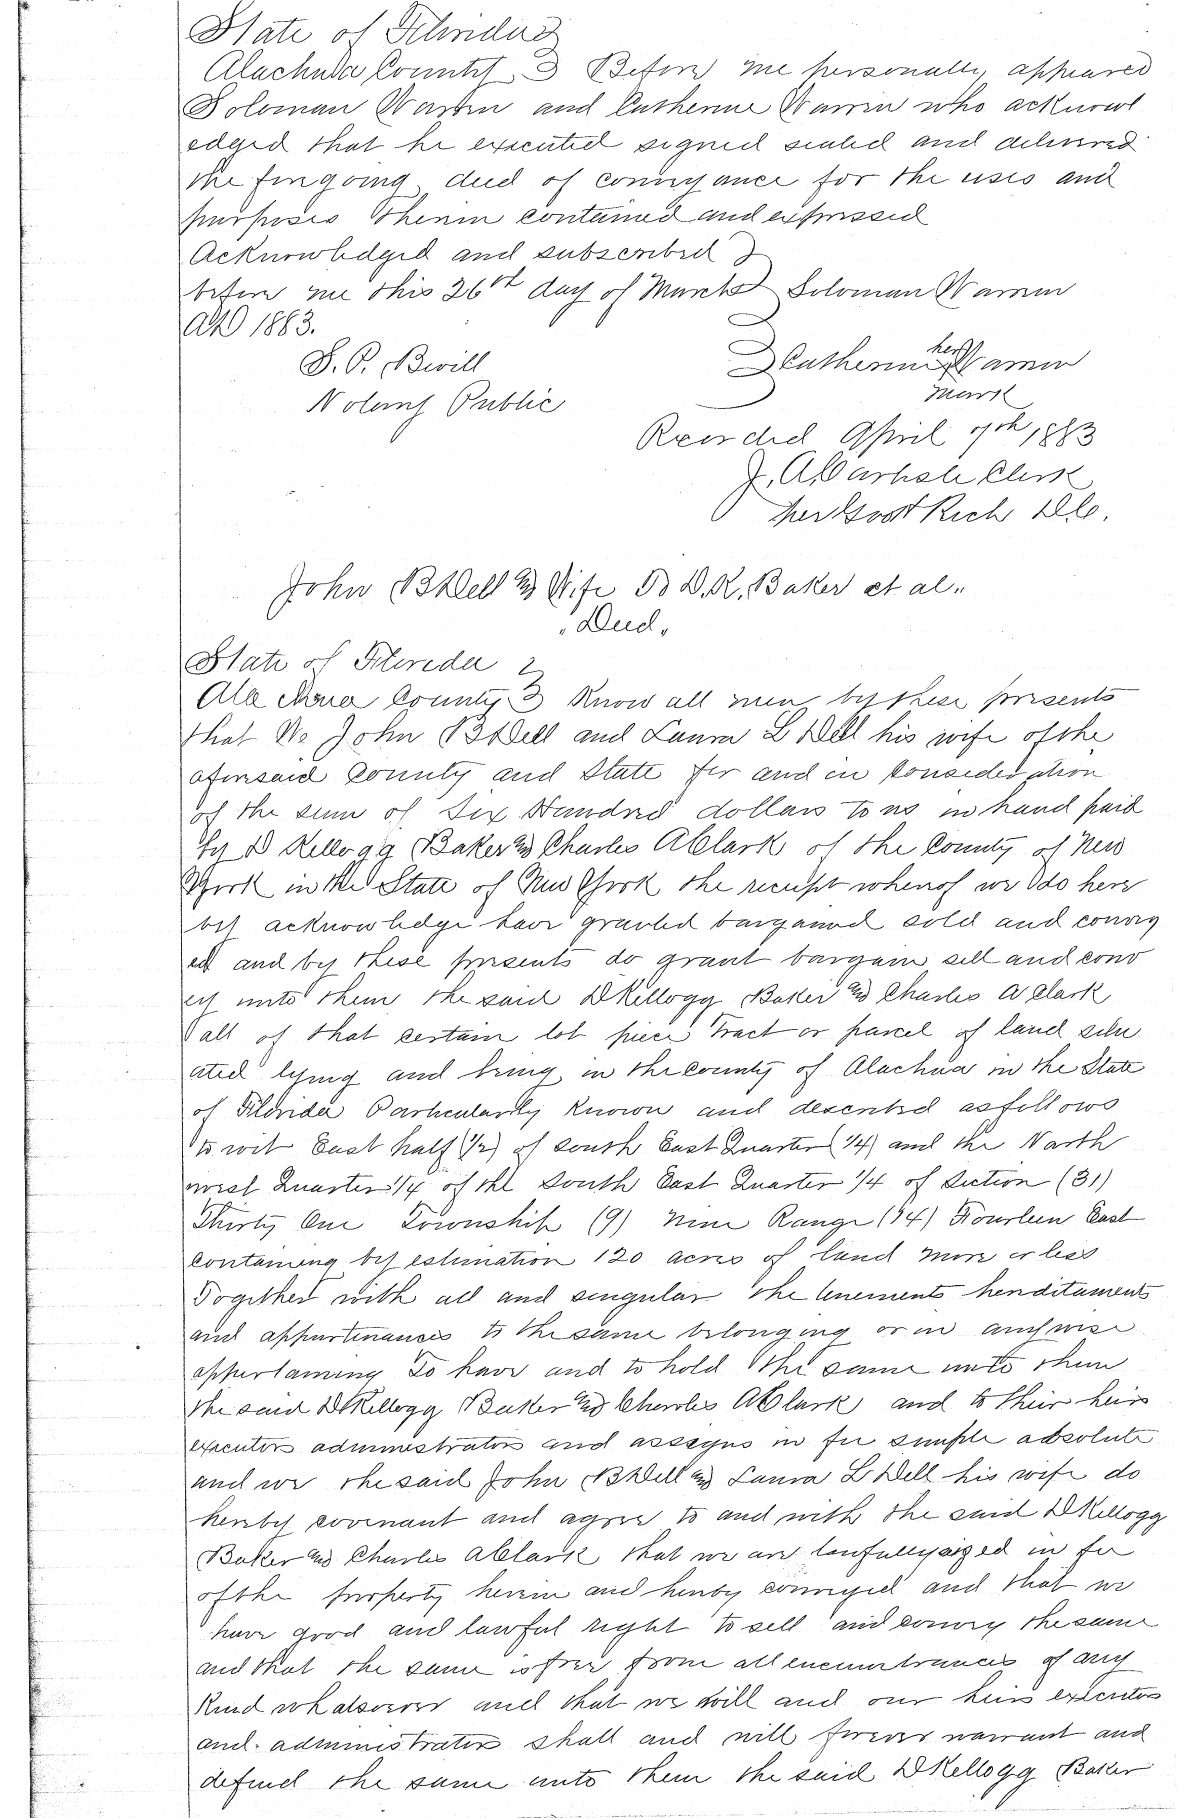 State of Florida
Alachua County } Before me personally appeared
Soloman Warren and Catherine Warren who acknowl
edged that he executed signed sealed and delivered
the forgoing deed of conveyance for the uses and
purposes therein contained and expressed
Acknowledged and subscribed }
before me this 26th day of March Soloman Warren
AD 1883.
S. P. Bevill
her
Catherine Warren
mark
Notary Public
Recorded April 7th 1883
J. A. Carlisle Clerk
Per Rich D.C.
John B Dell and Wife To D. K. Baker et al.
"Deed"
State of Florida }
Alachua County } Know all men by these presents
that We John B Dell and Laura L Dell his wife of the
aforesaid County and State for and in consideration
of the sum of Six Hundred dollars to us in hand paid
by D Kellogg Baker and Charles A Clark of the County of New
York in the State of New York the receipt whereof we do here
by acknowledge have granted bargained sold and convey
ed and by these presents do grant bargain sell and conv
ey unto them the said D Kellogg Baker and Charles A Clark
all of that certain lot piece tract or parcel of land situ
ated lying and being in the county of Alachua in the State
of Florida Particularly known and described as follows
to wit East half (1/2) of South East Quarter (1/4) and the North
west Quarter 1/4 of the South East Quarter 1/4 of Section (31)
Thirty One Township (9) Nine Range (14) Fourteen East
containing by estimation 120 acres of land more or less
Together with all and singular the tenements herditaments
and appurtenances to the same belonging or in anywise
appertaining To have and to hold the same unto them
the said D Kellogg Baker and Charles A Clark and to their heirs
executors administrators and assigns in fee simple absolute
and we the said John B Dell and Laura L Dell his wife do
hereby covenant and agree to and with the said D Kellogg
Baker and Charles A Clark that we are lawfully seized in fee
of the property herein and hereby conveyed and that we
have good and lawful right to sell and convey the same
and that the same is free from all encumbrances of any
Kind whatsoever and that we will and our heirs executors
and administrators shall and will forever warrant and
defend the same unto them the said D Kellogg Baker